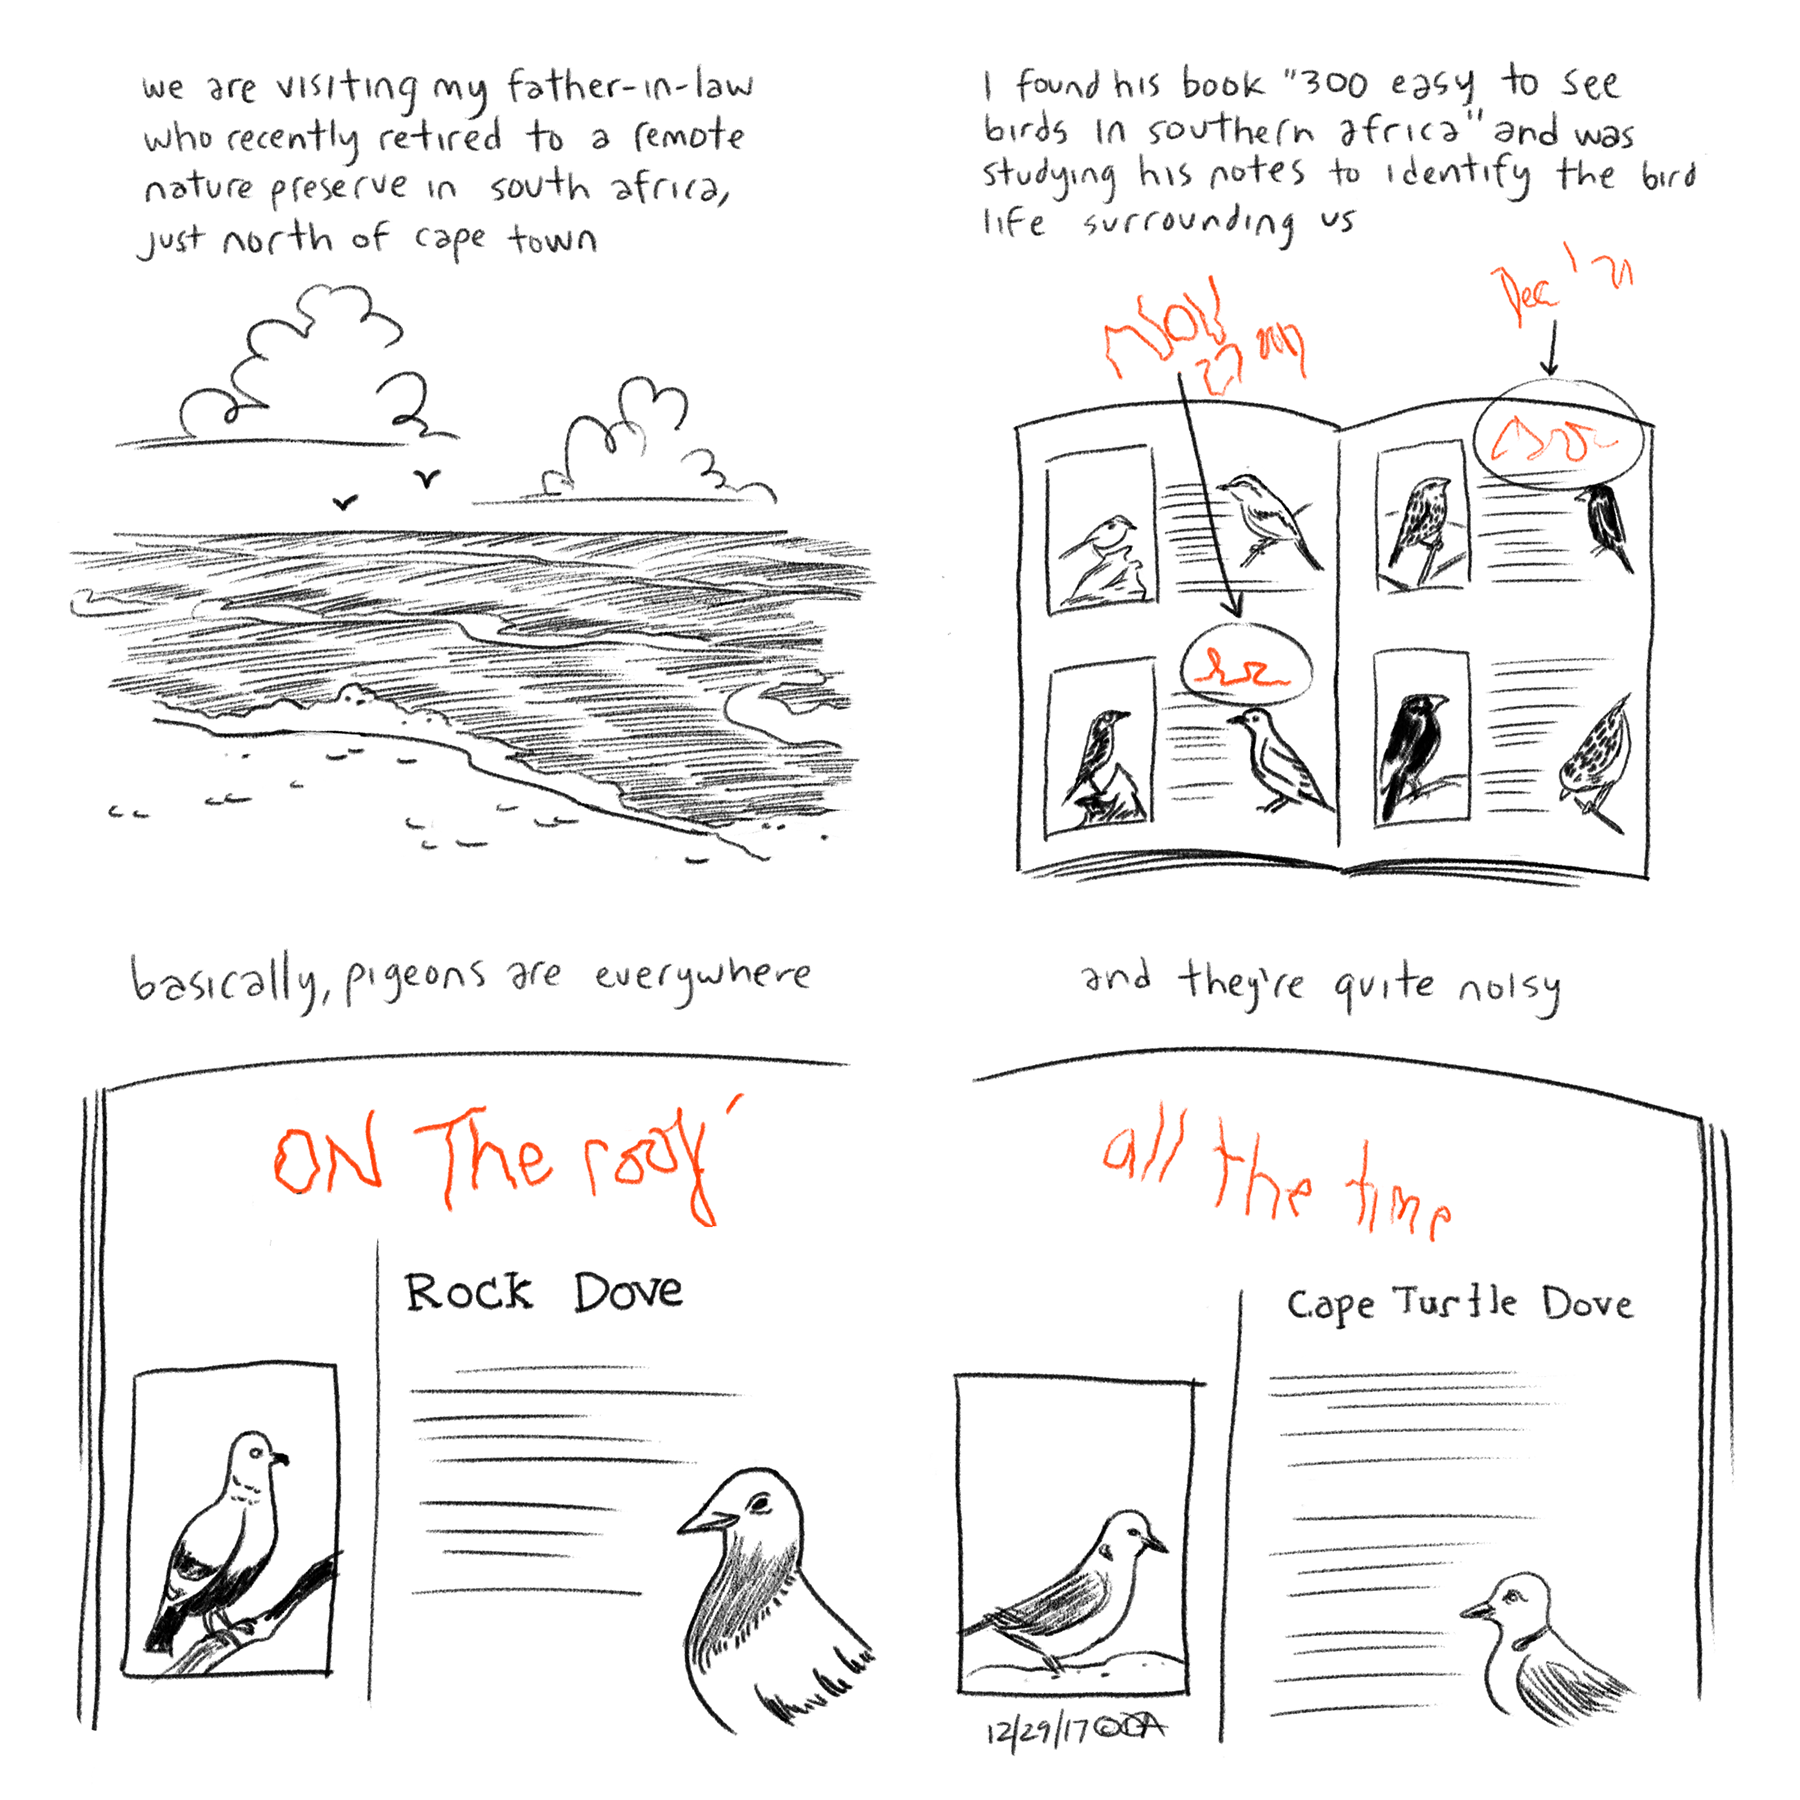 we are visiting my father-in-law
who recently retired to a remote
nature preserve in south africa,
just north of cape town
I found his book "300 easy to see
birds in southern africa" and was
studying his notes to identify the bird
life surrounding us
Nov
27
Dec '21
basically, pigeons are everywhere
ON The roof
Rock Dove
and they're quite noisy
all the time
Cape Turtle Dove
12/29/17 ©